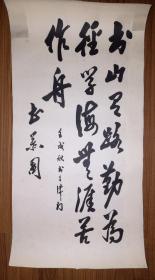 书山有路勤为
径学海无涯苦
作舟
壬戌秋书于津门